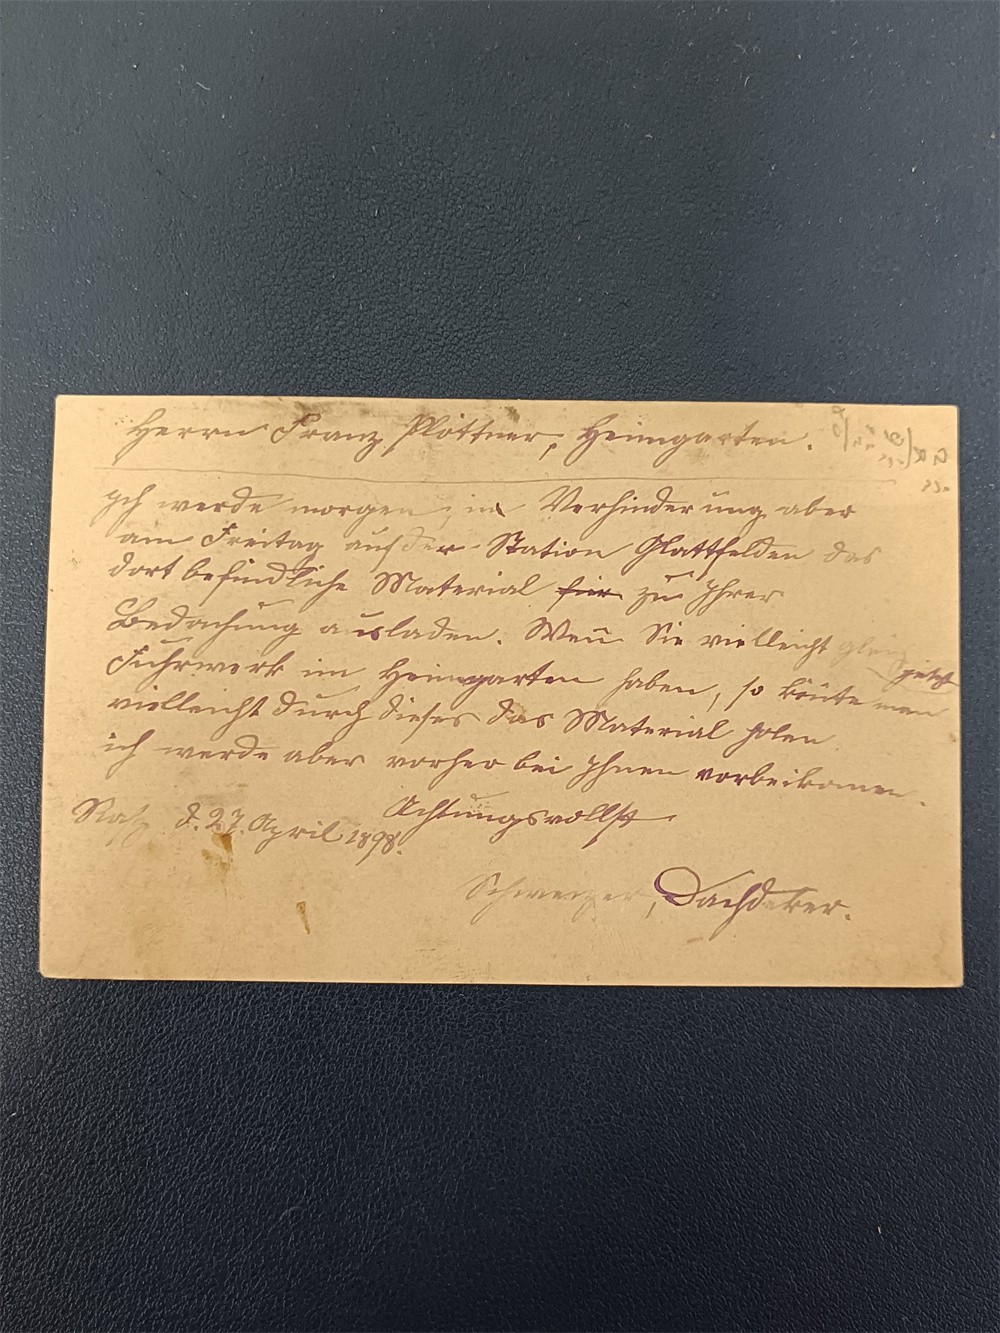 Herrn Franz Plöttner, Heimgarten.
Ich werde morgen, in Verhinderung aber
am Freitag auf der Station Glattfelden das
dort befindliche Material für zu Ihrer
Bedachung ausladen. Wen̅ Sie vielleicht
jetzt
Fuhrwerk im Heimgarten haben, so kön̅te man
vielleicht durch dieses das Material holen
ich werde aber vorher bei Ihnen vorbeikom̅en.
Achtungsvollst
Rafz d. 27. April 1898.
Schweizer, Dachdeker.